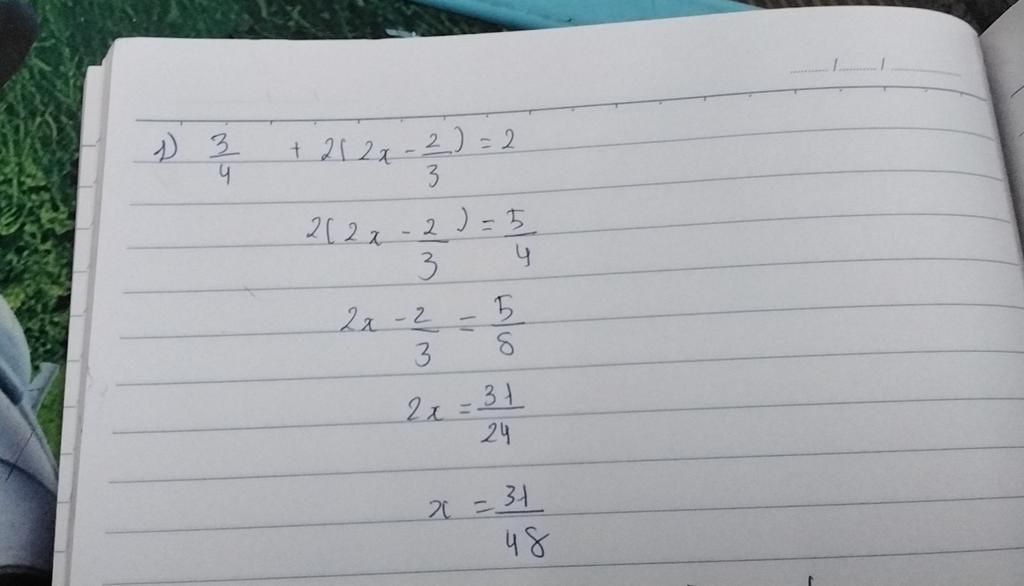 1) 3/4 + 2(2x - 2/3) = 2
2(2x - 2/3) = 5/4
2x - 2/3 = 5/8
2x = 31/24
x = 31/48